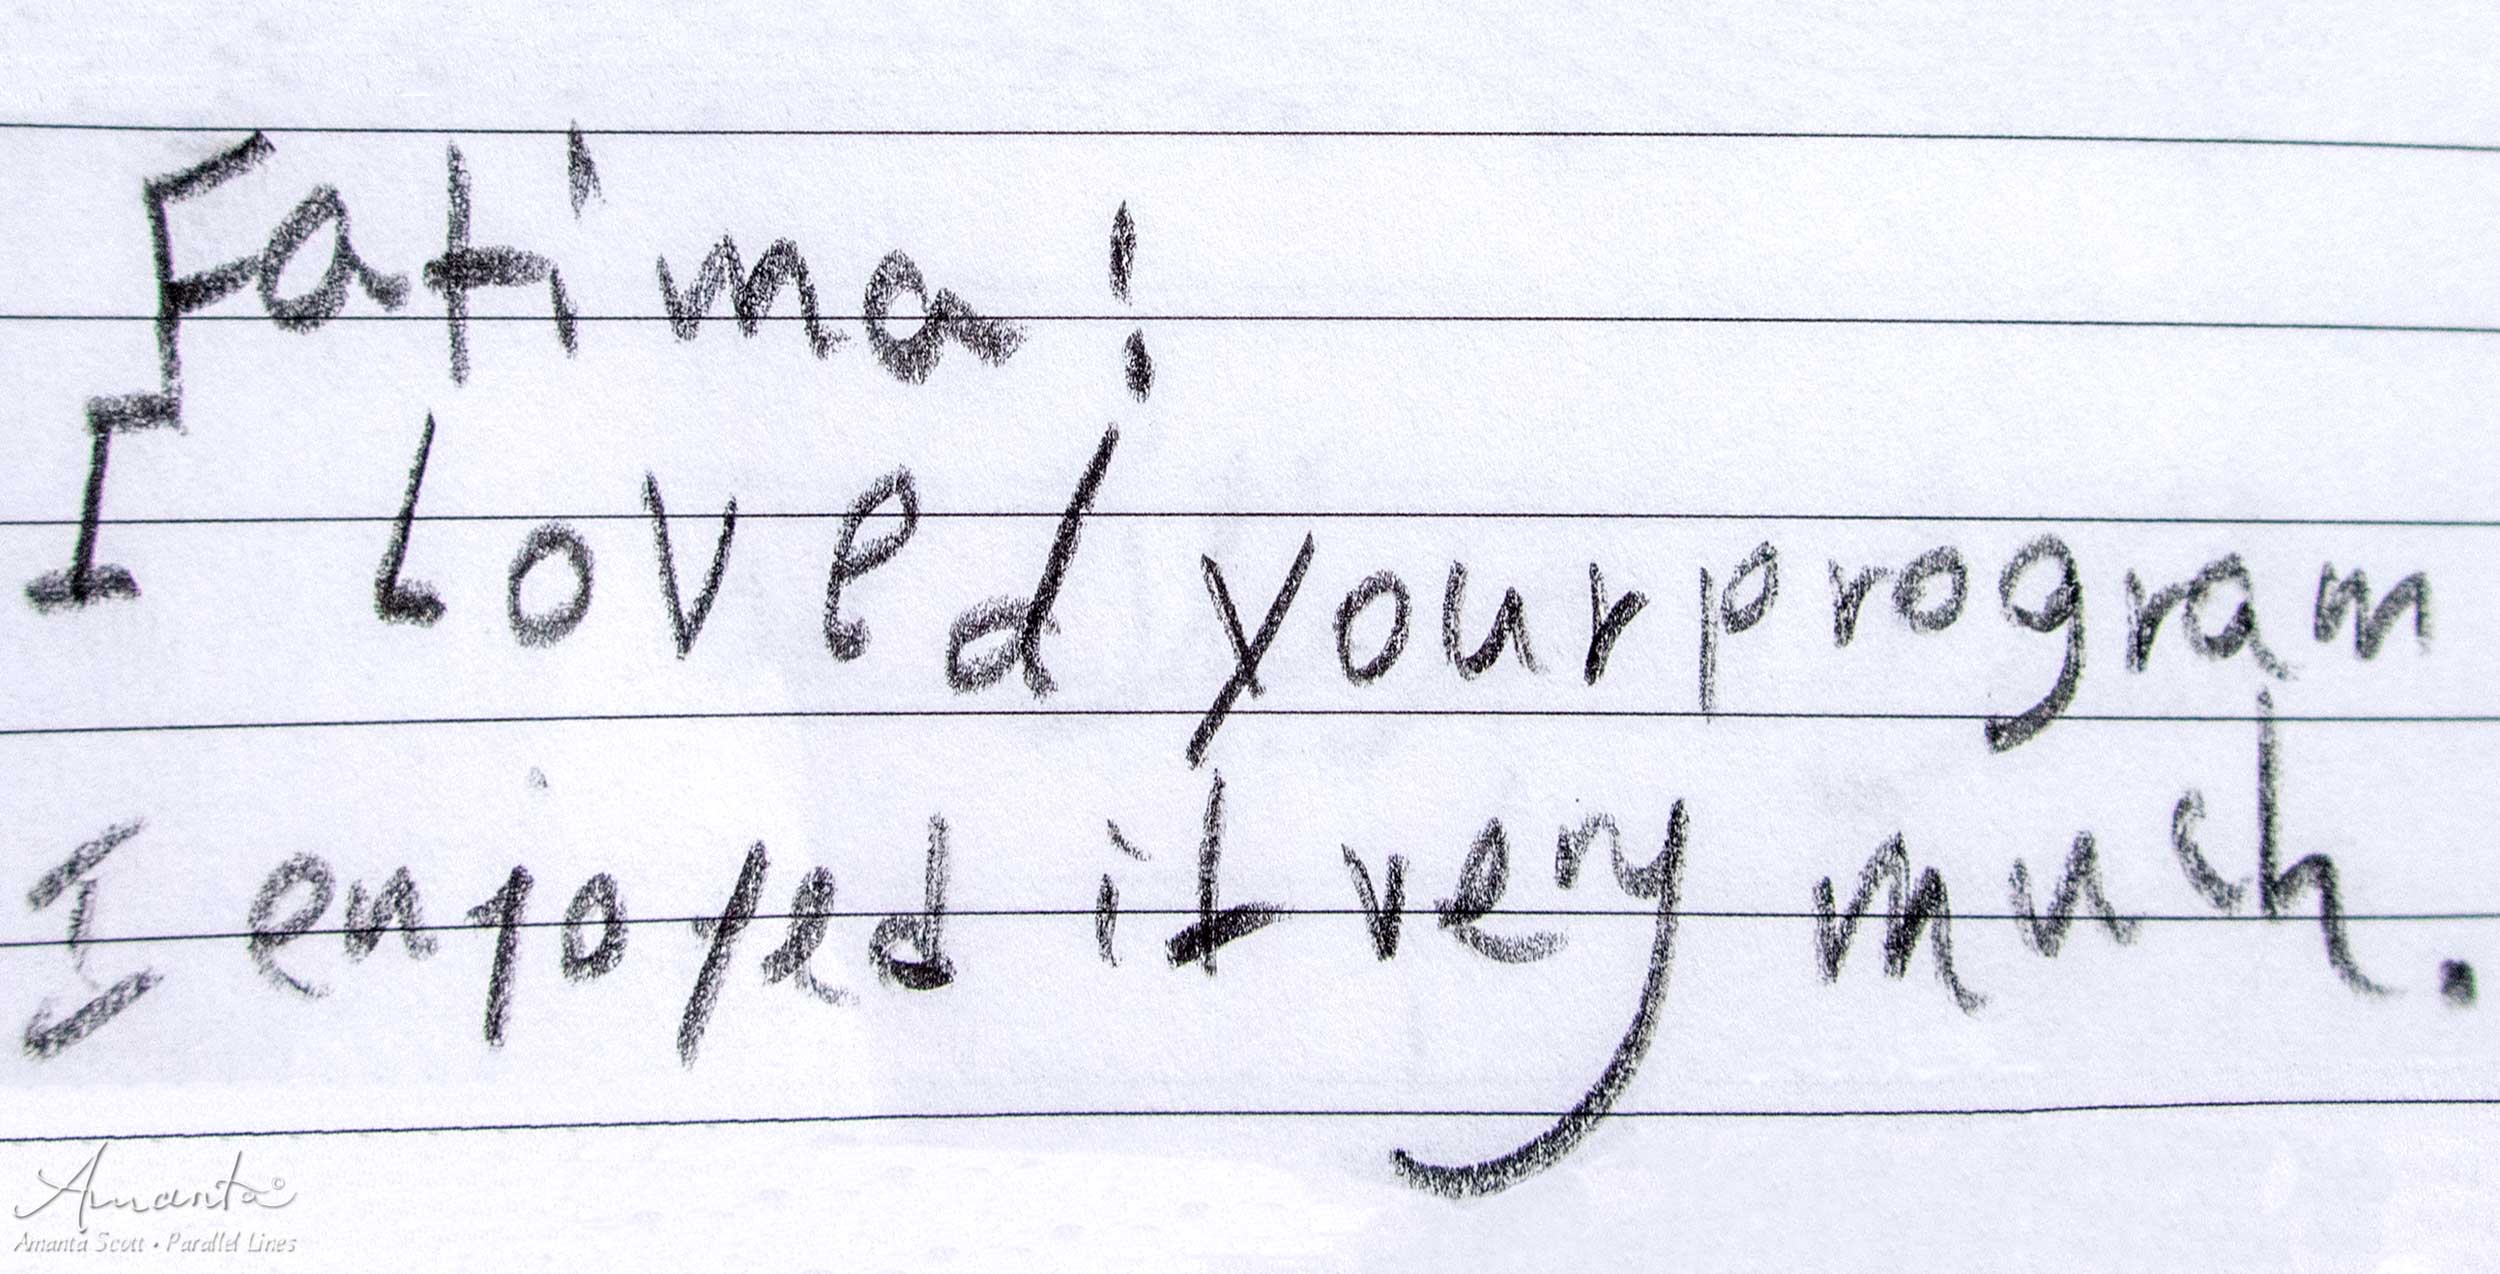 Fatima!
I loved your program
I enjoyed it very much.
Amanta©
Amanta Scott • Parallel Lines